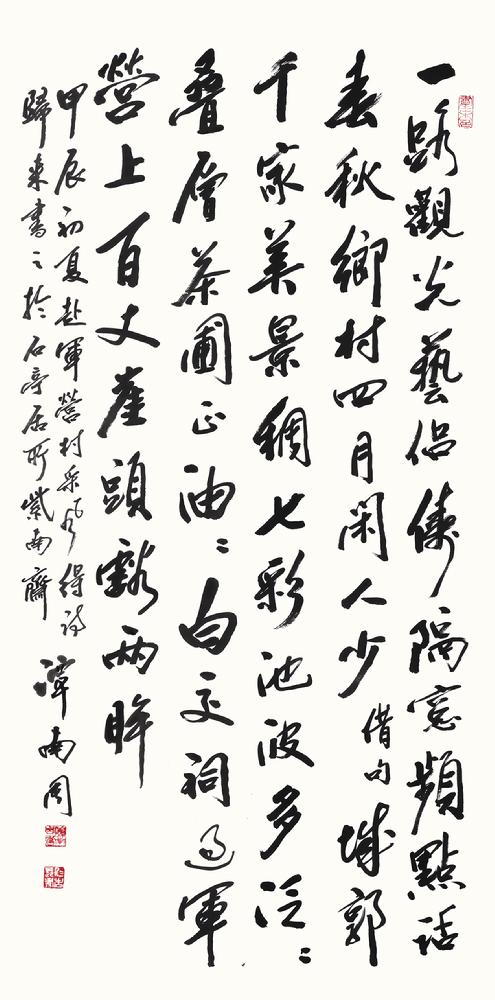 一路觀光藝侶儔隔窗頻點話
春秋鄉村四月閑人少借句城郭
千家美景稠七彩池波多泛〻
叠層茶圃正油〻白交祠過軍
營上百丈崖頭豁兩眸
甲辰初夏赴軍營村采風得詩
歸來書之於石亭居所紫南齋
漳南周